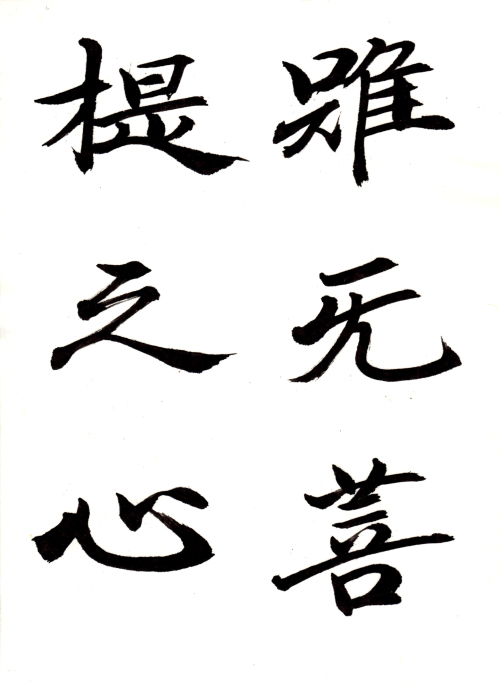 雖无菩
提之心